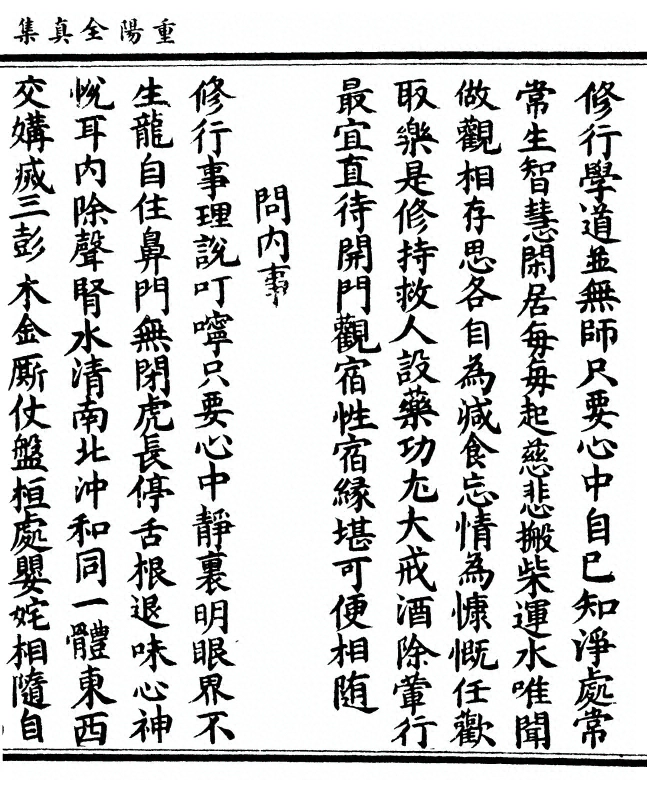 重陽全真集
修行學道並無師只要心中自已知淨處常
常生智慧閑居每每起慈悲搬柴運水唯聞
做觀相存思各自為減食忘情為慷慨任歡
取樂是修持救人設藥功尤大戒酒除葷行
最宜直待開門觀宿性宿緣堪可便相随
問內事
修行事理說叮嚀只要心中靜裏明眼界不
生龍自住鼻門無閉虎長停舌根退味心神
悅耳內除聲腎水清南北沖和同一體東西
交媾滅三彭木金厮仗盤桓處嬰姹相隨自